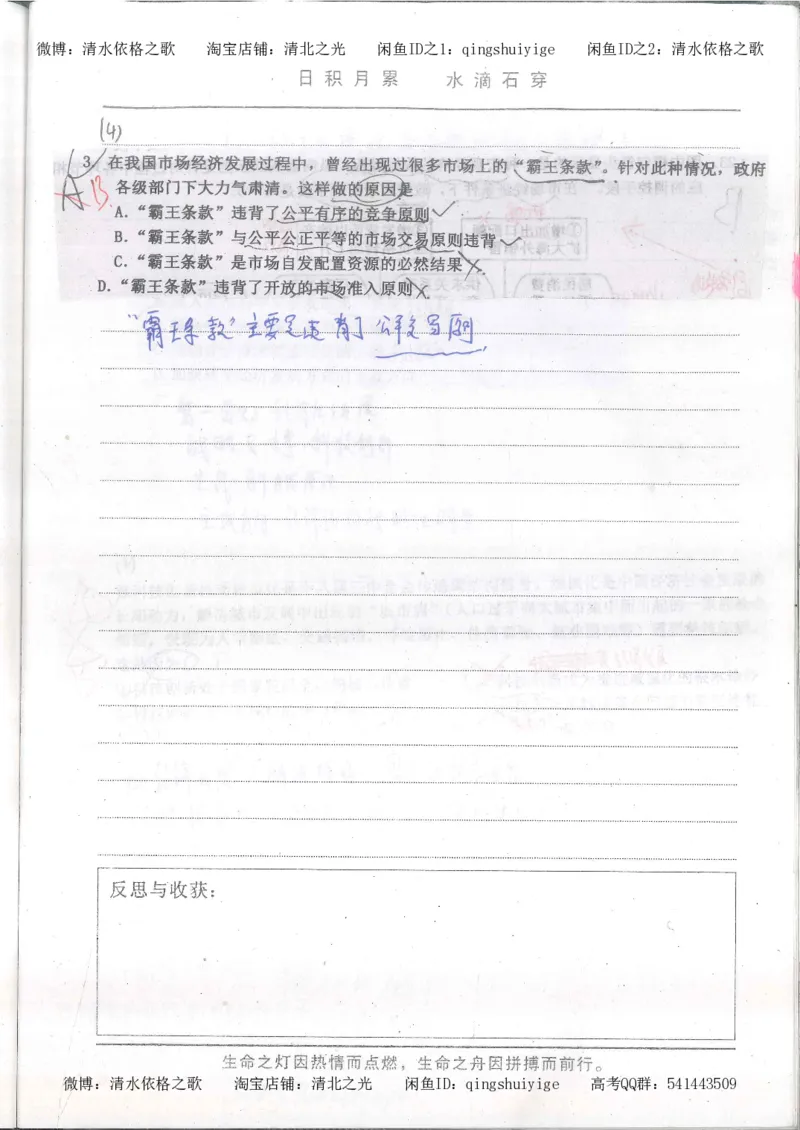 微博：清水依格之歌 淘宝店铺：清北之光 闲鱼ID之1：qingshuiyige 闲鱼ID之2：清水依格之歌
日积月累 水滴石穿
(4)
3. 在我国市场经济发展过程中，曾经出现过很多市场上的“霸王条款”。针对此种情况，政府
各级部门下大力气肃清。这样做的原因是
A B
A. “霸王条款”违背了公平有序的竞争原则 ✓
B. “霸王条款”与公平公正平等的市场交易原则违背 ✓
C. “霸王条款”是市场自发配置资源的必然结果 ×
D. “霸王条款”违背了开放的市场准入原则 ×
“霸王条款”主要是违背了公平交易原则
反思与收获：
生命之灯因热情而点燃，生命之舟因拼搏而前行。
微博：清水依格之歌 淘宝店铺：清北之光 闲鱼ID：qingshuiyige 高考QQ群：541443509